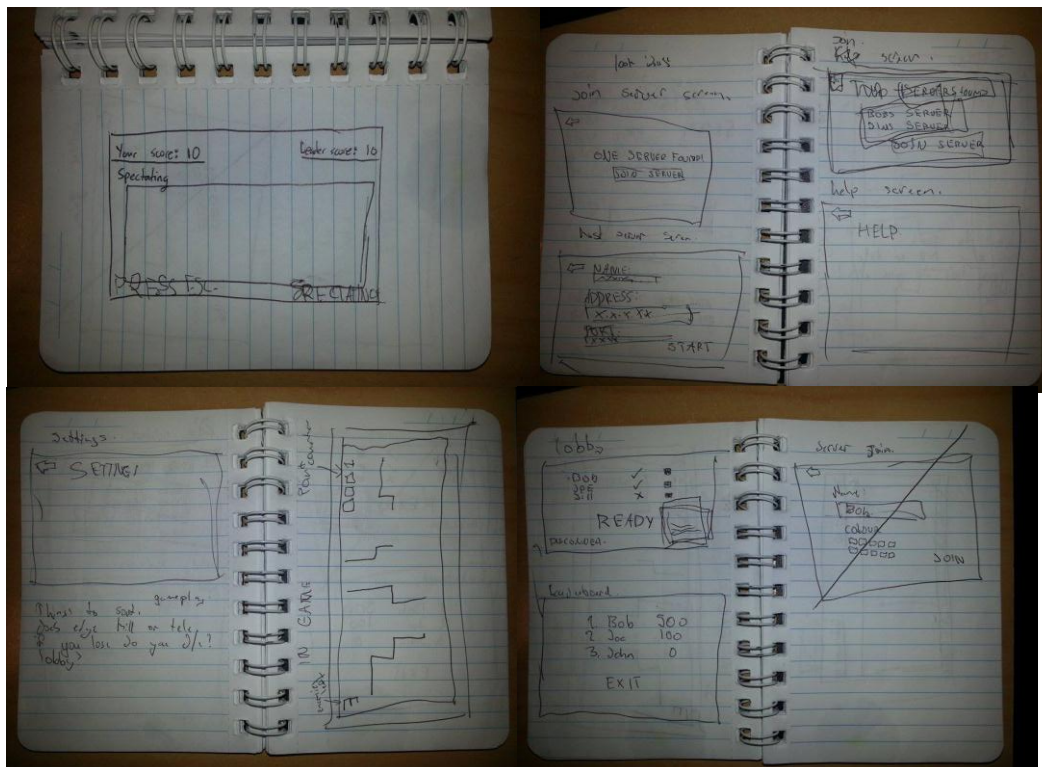 Your score: 10
Leader score: 10
Spectating
PRESS ESC.
SPECTATING
Join server screen.
ONE SERVER FOUND!
JOIN SERVER
Host server screen.
NAME
ADDRESS:
X.X.X.XX
PORT:
XXXX
START
Join
screen.
BOBS SERVER
JIMS SERVER
JOIN SERVER
help screen.
HELP
Settings.
SETTINGS
gameplay
Things to sort.
Does edge kill or tele.
If you lose do you d/c?
lobby?
Point counter
IN GAME
lobby
BOB
JOE
Bill
READY
Leaderboard.
1. Bob 500
2. Joe 100
3. John 0
EXIT
Server Join.
Name:
Bob
COLOUR
JOIN